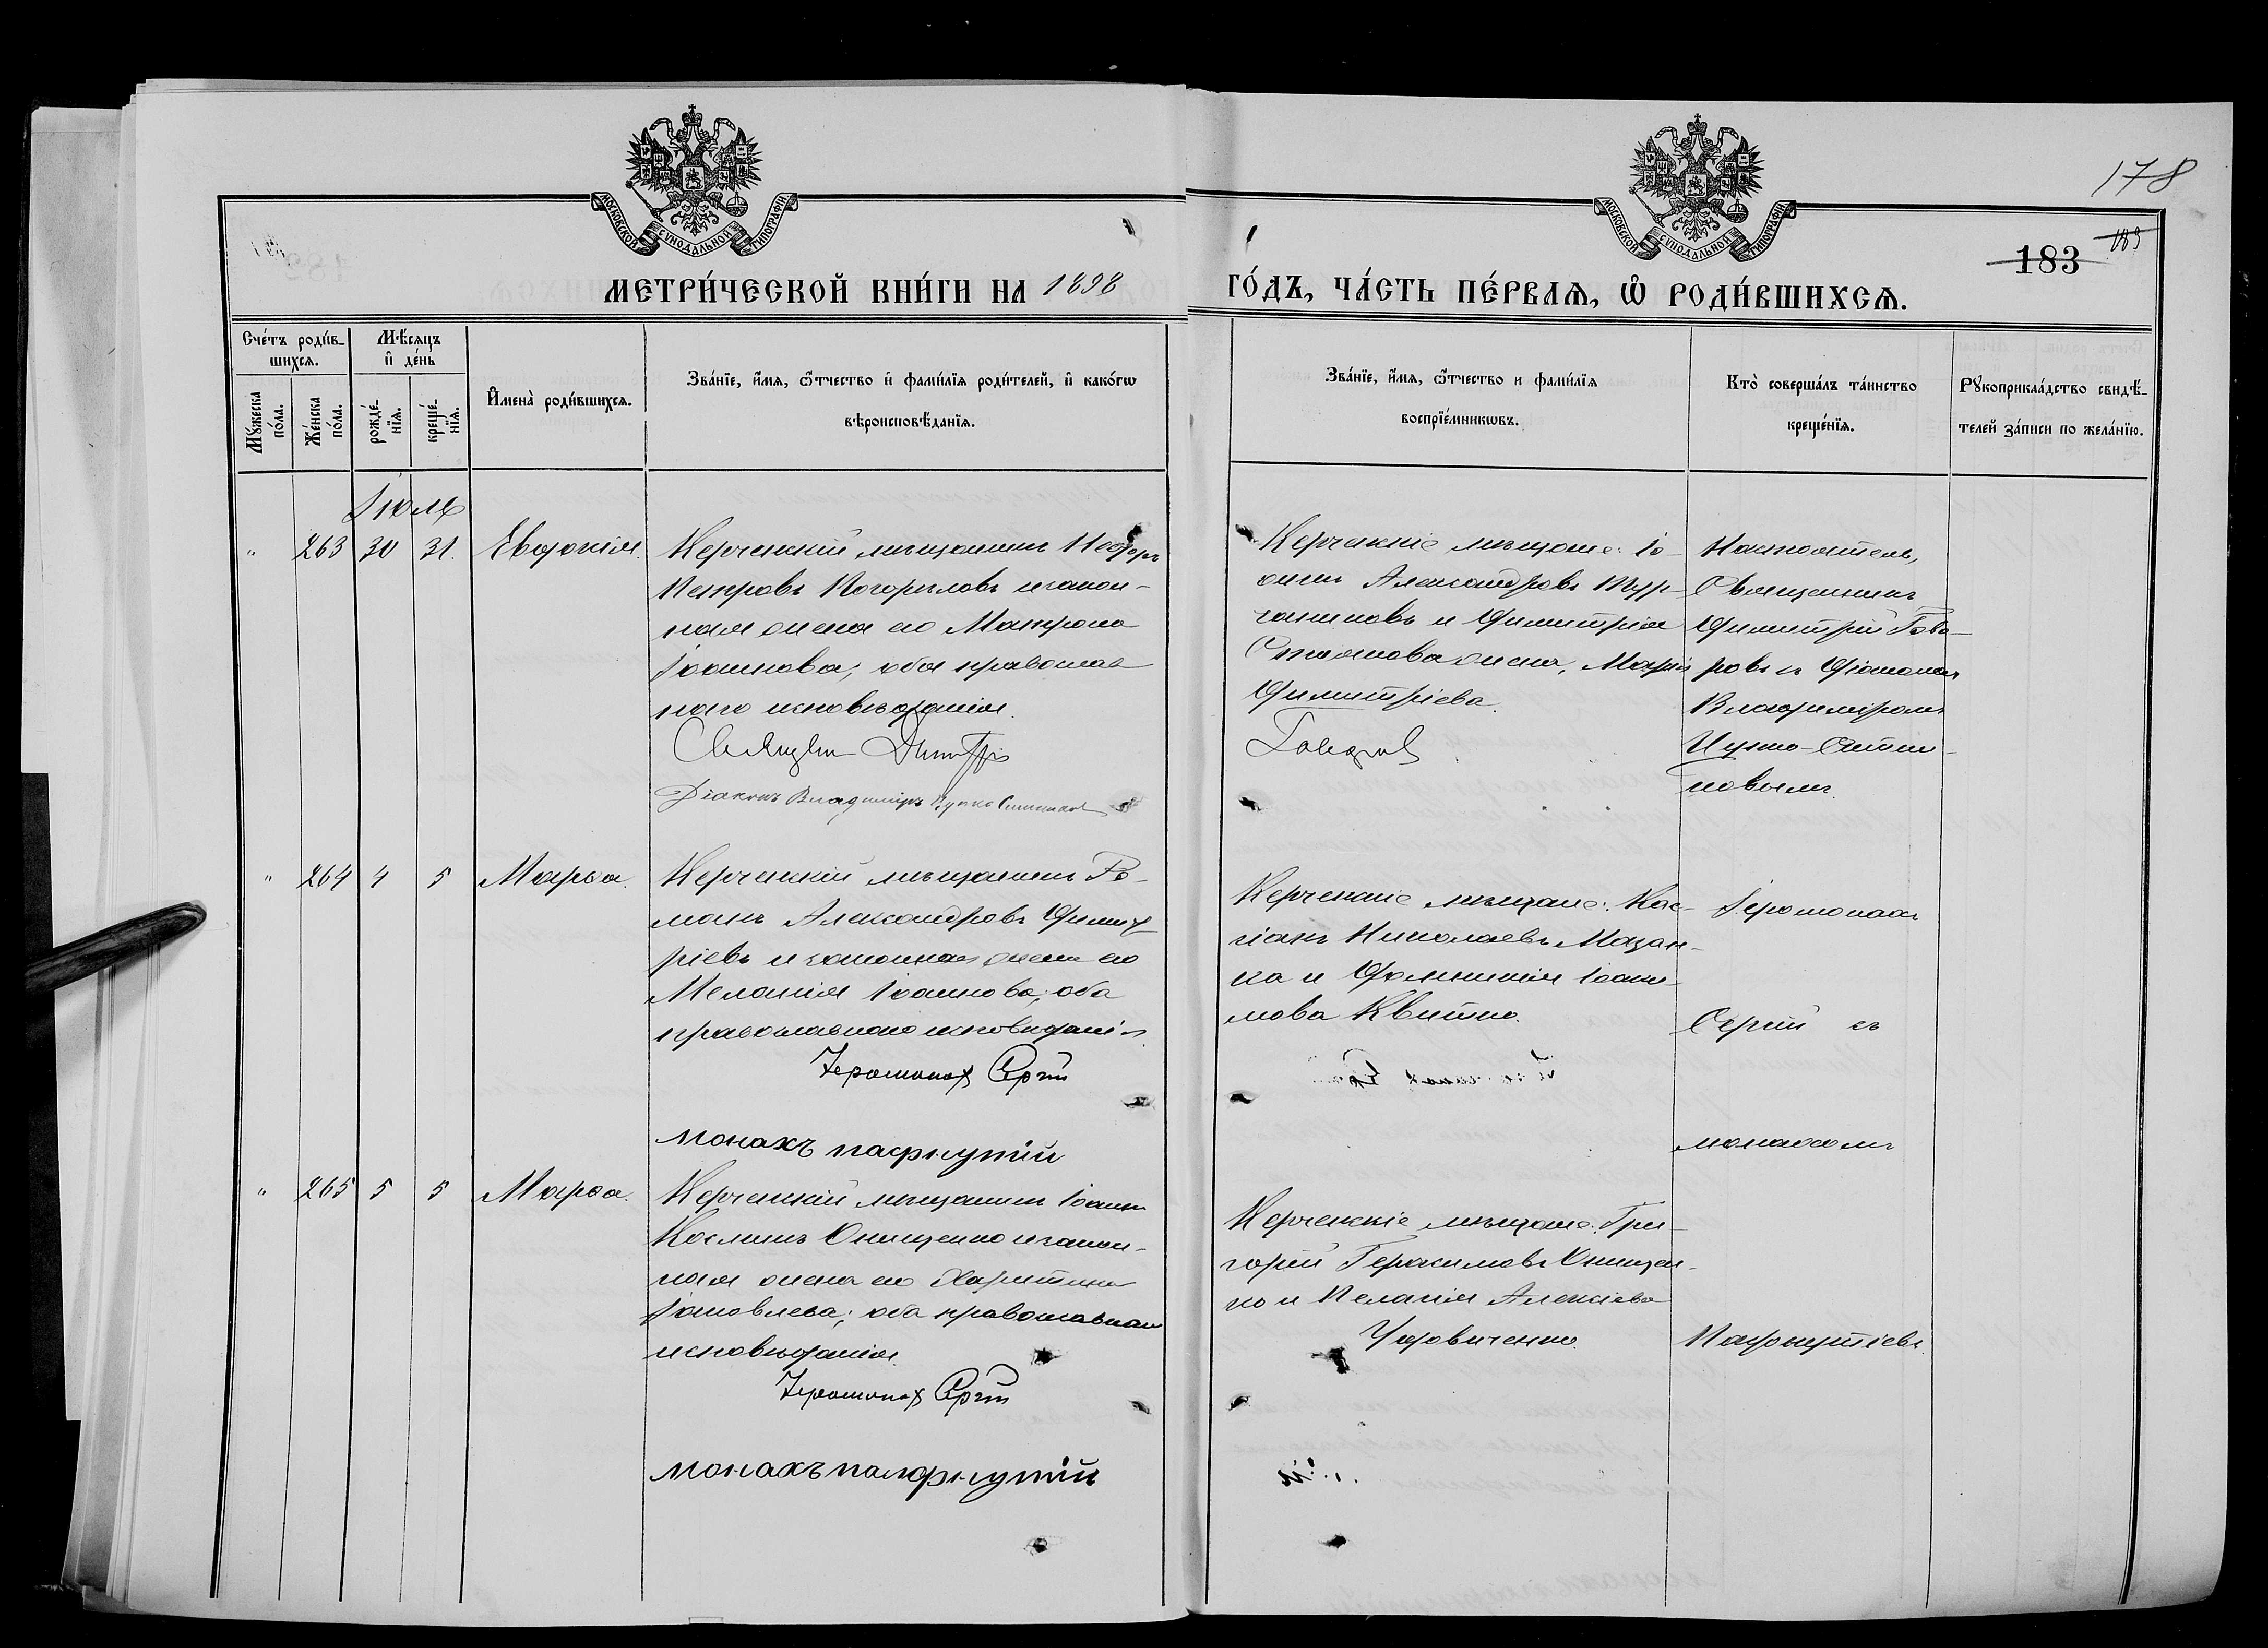 178
183
МОСКОВСКОЙ СѴНОДАЛЬНОЙ ТИПОГРАФІИ
МОСКОВСКОЙ СѴНОДАЛЬНОЙ ТИПОГРАФІИ
МЕТРИ́ЧЕСКОЙ КНИ́ГИ НА 1898
ГО́ДЪ, ЧА́СТЬ ПЕ́РВАѦ, Ѿ РОДИ́ВШИХСѦ.
Сче́тъ роди́в-
шихсѧ.
Мꙋ́жеска по́ла.
Же́нска по́ла.
Мѣ́сѧцъ
и҆ де́нь
рожде́-
нїѧ.
креще́-
нїѧ.
И҆мена̀ роди́вшихсѧ.
Зва́нїе, и҆́мѧ, ѻ҆́тчество и҆ фами́лїѧ роди́телей, и҆ како́гѡ
вѣроисповѣ́данїѧ.
Зва́нїе, и҆́мѧ, ѻ҆́тчество и фами́лїѧ
воспрїе́мникѡвъ.
Кто̀ соверша́лъ та́инство
креще́нїѧ.
Рꙋкоприкла́дство свидѣ́-
телей за́писи по жела́нїю.
Іюль
" 263 30 31. Евдокія.
Керченскій мѣщанинъ Ѳеодоръ
Петровъ Погорѣловъ и закон-
ная жена его Матрона
Іоаннова; оба православ
наго исповѣданія.
Священ Димитрій
Діаконъ Владиміръ Цупко Ситников
Керченскіе мѣщане: Іо-
аннъ Александровъ
и Димитрія
жена, Марія
Димитріева.
Настоятель,
Священникъ
Димитрій Гово-
ровъ съ Діакономъ
Владиміромъ
Цупко-Ситни-
ковымъ.
" 264 4 5 Марѳа.
Керченскій мѣщанинъ Ро-
манъ Александровъ Димит
ріевъ и законная жена его
Меланія Іоаннова; оба
православнаго исповѣданія.
Іеромонах Сергій
монахъ пафнутій
Керченскіе мѣщане: Кас-
сіанъ Николаевъ Мазан-
ка и Домникія Іоаки-
мова Квитко.
Іеромонахъ
Сергій съ
монахомъ
" 265 5 5 Марѳа.
Керченскій мѣщанинъ Іоаннъ
Косминъ Онищенко и закон-
ная жена его Харитина
Іаковлева; оба православнаго
исповѣданія.
Іеромонах Сергій
монахъ пафнутій
Керченскіе мѣщане: Гри-
горій Герасимовъ Онищен-
ко и Пелагія Алексіева
Удовиченко.
Пафнутіемъ.